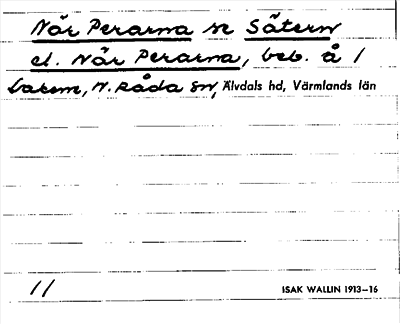 När Perarna se Sätern
el. När Perarna, beb. å 1
N. Råda sn, Älvdals hd, Värmlands län
11
ISAK WALLIN 1913–16